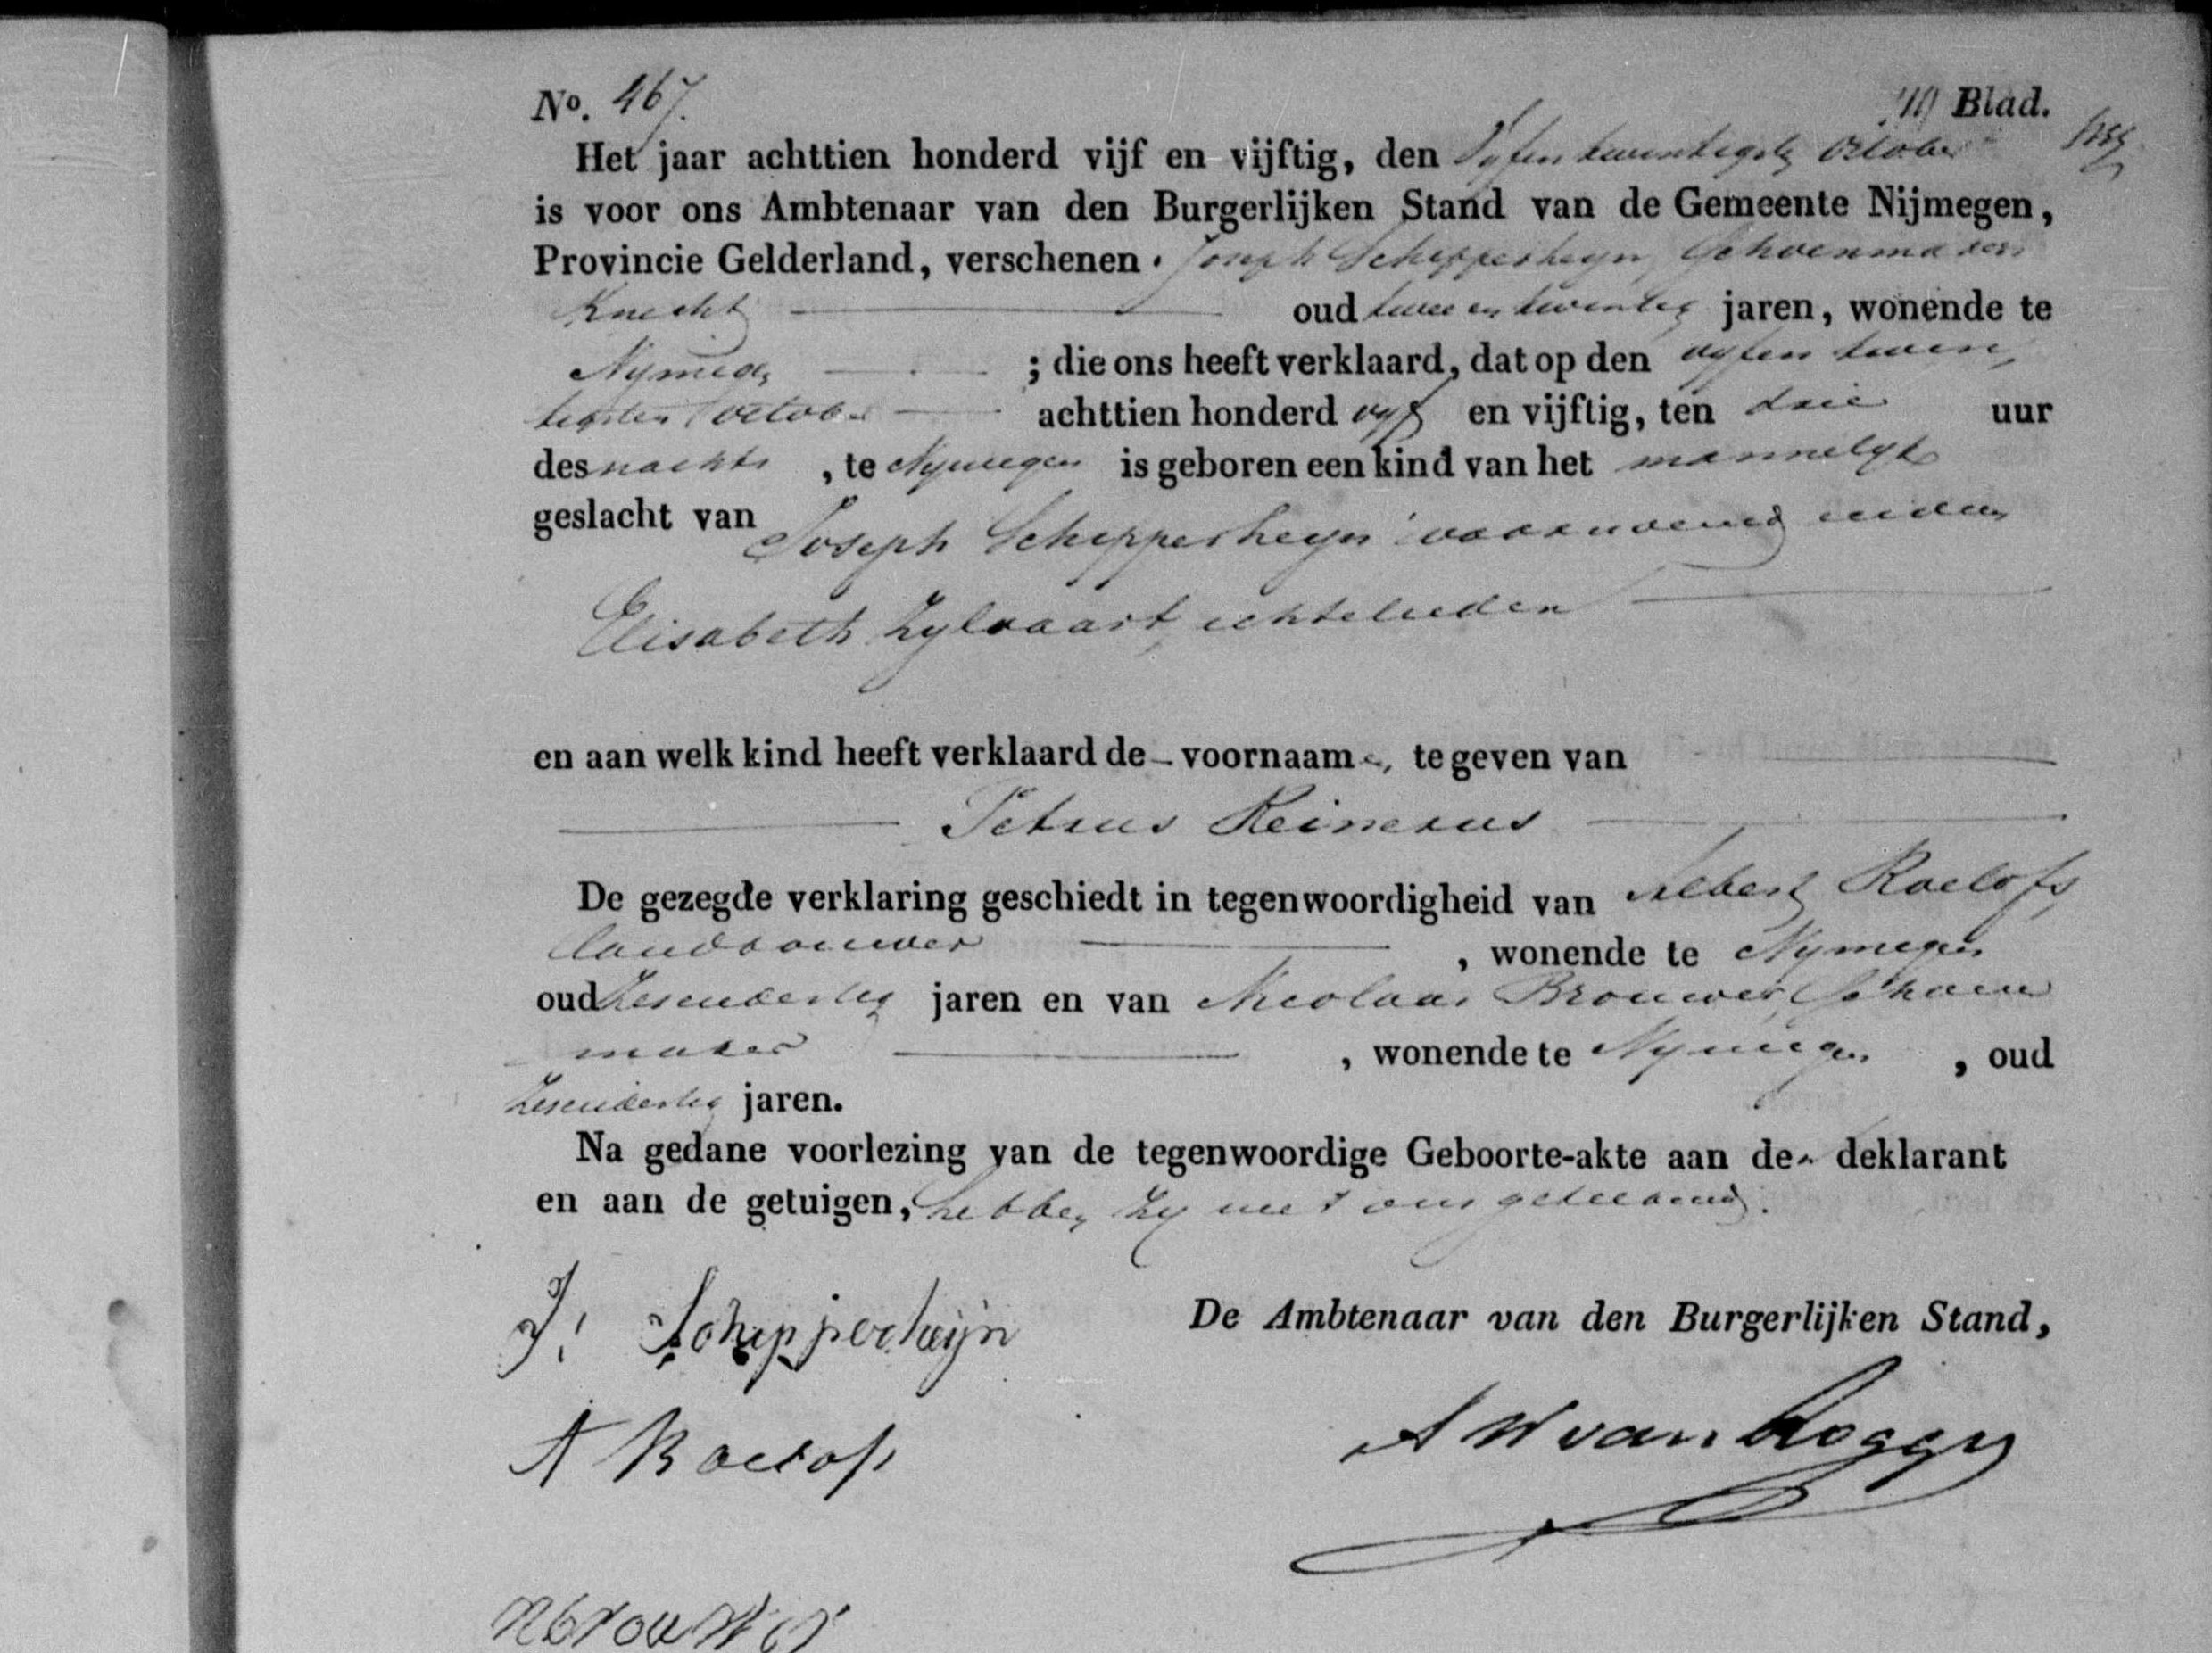 No. 467. Blad.
Het jaar achttien honderd vijf en vijftig, den Vyfentwintigste October
is voor ons Ambtenaar van den Burgerlijken Stand van de Gemeente Nijmegen,
Provincie Gelderland, verschenen Joseph Schipperheyn, Schoenmakers
Knecht oud twee en twintig jaren, wonende te
Nymegen ; die ons heeft verklaard, dat op den vyfen twin
tigsten October achttien honderd vyf en vijftig, ten drie uur
des nachts , te Nymegen is geboren een kind van het mannelyk
geslacht van Joseph Schipperheyn voornoemd en van
Elisabeth Zylvaart, echtelieden
en aan welk kind heeft verklaard de voornaam te geven van
Petrus Reinerus
De gezegde verklaring geschiedt in tegenwoordigheid van Albert Roelofs,
landbouwer , wonende te Nymegen
oud Zesendertig jaren en van Nicolaas Brouwer, Schoen
maker , wonende te Nymegen , oud
Zesendertig jaren.
Na gedane voorlezing van de tegenwoordige Geboorte-akte aan den deklarant
en aan de getuigen, hebben zy met ons geteekend.
J: Schipperheijn De Ambtenaar van den Burgerlijken Stand,
A Roelofs
A W van
N brouwer